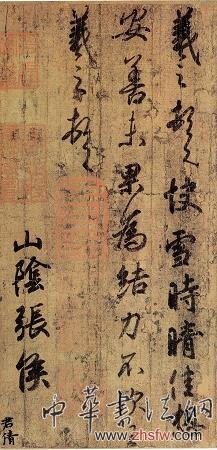 羲之頓首快雪時晴佳想
安善未果為結力不次王
羲之頓首
山陰張侯
君倩
中华书法网
www.zhsfw.com